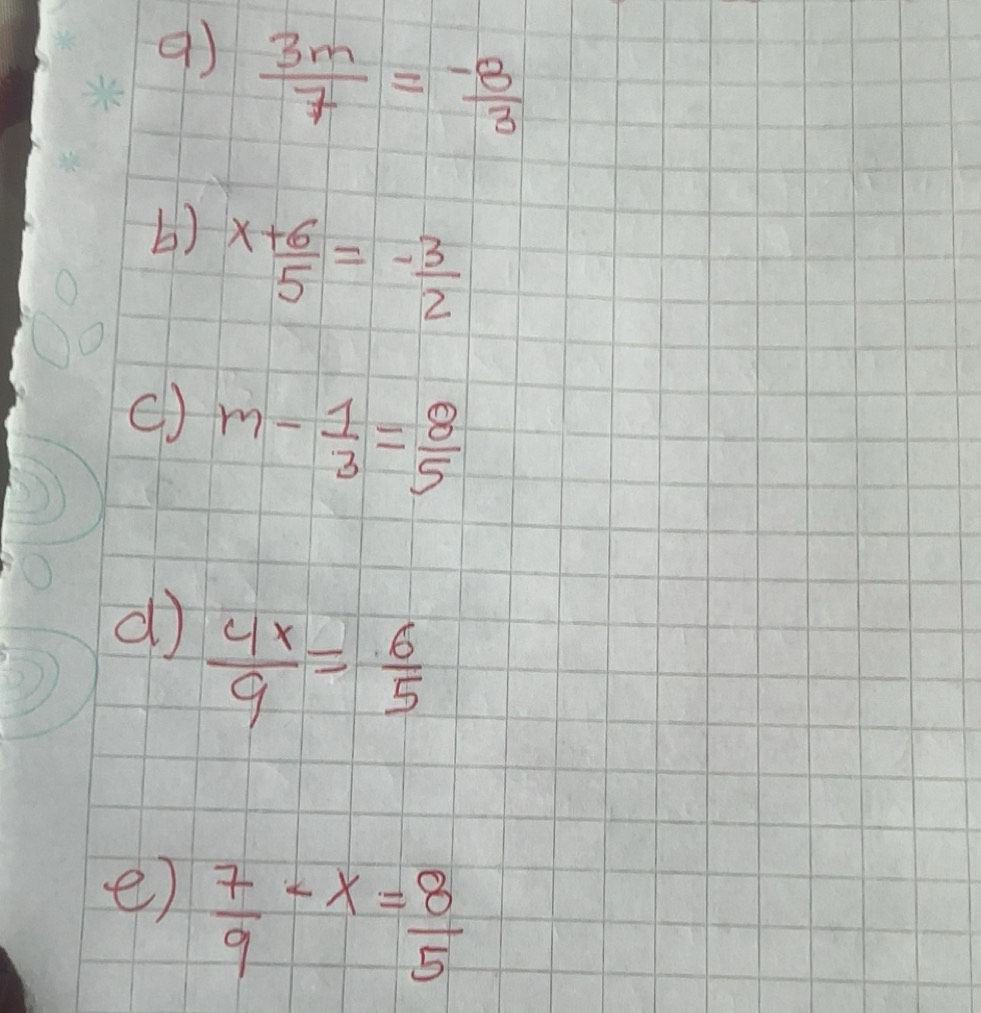 a) 3m/7 = -8/3
b) x + 6/5 = -3/2
c) m - 1/3 = 8/5
d) 4x/9 = 6/5
e) 7/9 - x = 8/5